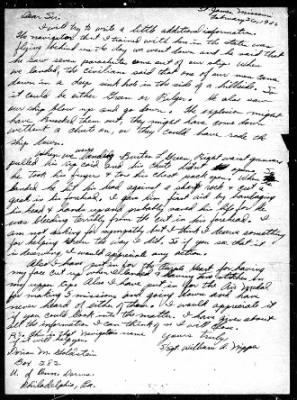 St. Yaven, Missouri
February 26, 1946
Dear Sir:
I will try to write a little additional information.
The navigator that I trained with him in the states was
flying behind us the day we went down and he said that
he saw seven parachutes come out of our ship. When
we landed, the civilians said that one of our men came
down in a deep sink hole in the side of a hillside. So
it could be either Green or Bilger. He also saw
our ship blow up and go down. The explosion might
have knocked them out, they might have come down
without a chute on, or they could have rode the
ship down.
When we were Burton T. Green, Right waist gunner
pulled his rip cord and his chute
he took his fingers & tore his chest pack open. When I
landed he hit his head against a sharp rock & cut a
gash in his forehead. I gave him first aid by bandaging
his head & hand and probably saved his life for he
was bleeding terribly from the cut in his forehead. I
am not asking for sympathy but I think I deserve something
for helping him the way I did. So if you see that it
is deserving I would appreciate any action.
Also I have put in for the Purple Heart for having
my face cut up when I landed and having two stitches in
my upper lip. Also I have put in for the Air Medal
for making 3 missions and going down and have
never heard of either of them. I would appreciate it
if you could look into the matter. I have give about
all the information I can think of so I will close.
P.S. This is Sgt navigators name Yours truly,
it will help you S/Sgt William A. Nipper
M. Goldstein
Box 282
U. of Penn. Dorms.
Philadelphia, Pa.